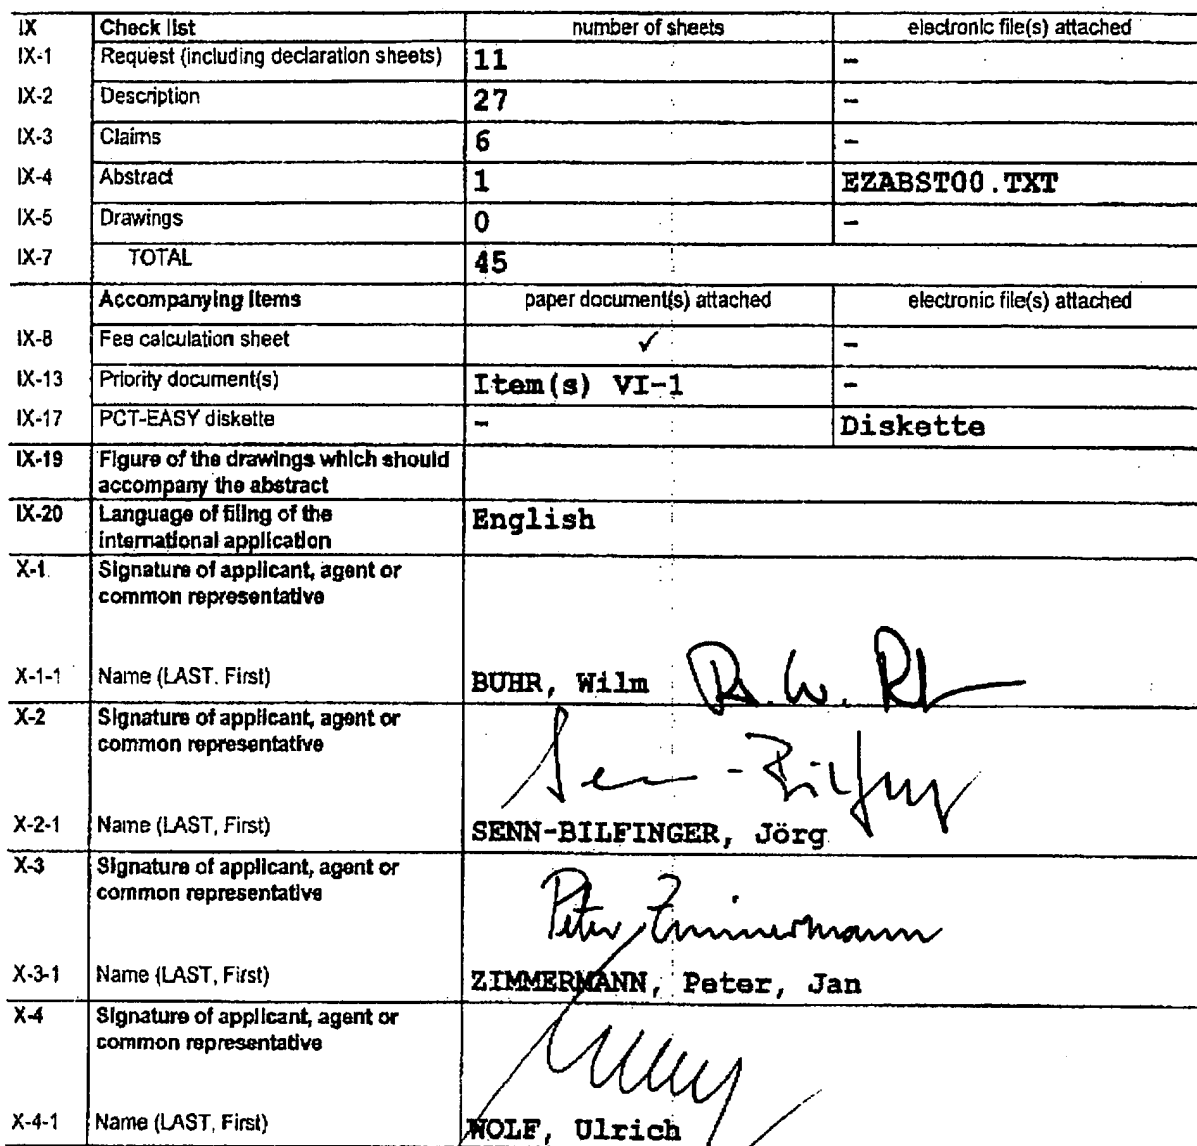 IX Check list number of sheets electronic file(s) attached
IX-1 Request (including declaration sheets) 11 -
IX-2 Description 27 -
IX-3 Claims 6 -
IX-4 Abstract 1 EZABST00.TXT
IX-5 Drawings 0 -
IX-7 TOTAL 45
Accompanying items paper document(s) attached electronic file(s) attached
IX-8 Fee calculation sheet ✓ -
IX-13 Priority document(s) Item(s) VI-1 -
IX-17 PCT-EASY diskette - Diskette
IX-19 Figure of the drawings which should
accompany the abstract
IX-20 Language of filing of the English
international application
X-1 Signature of applicant, agent or
common representative
X-1-1 Name (LAST, First) BUHR, Wilm
X-2 Signature of applicant, agent or
common representative
Senn-Bilfinger
X-2-1 Name (LAST, First) SENN-BILFINGER, Jörg
X-3 Signature of applicant, agent or
common representative
Peter Zimmermann
X-3-1 Name (LAST, First) ZIMMERMANN, Peter, Jan
X-4 Signature of applicant, agent or
common representative
X-4-1 Name (LAST, First) WOLF, Ulrich